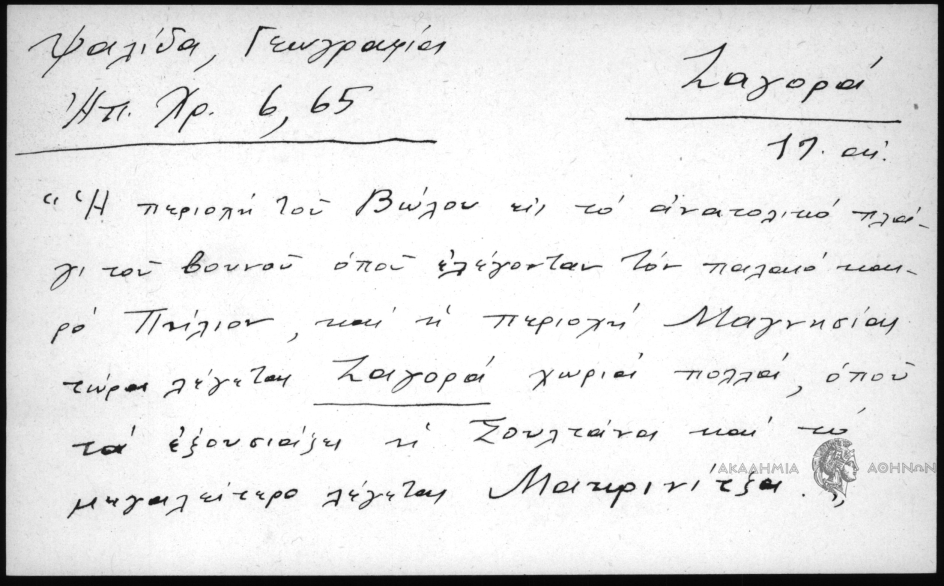 Ψαλίδα, Γεωγραφία
Ἠπ. Χρ. 6, 65
Ζαγορά
17. αἰ.
"Ἡ περιοχή τοῦ Βώλου εἰς τό ἀνατολικό πλά-
γι τοῦ βουνοῦ ὁποῦ ἐλέγονταν τόν παλαιό και-
ρό Πήλιον, καί ἡ περιοχή Μαγνησίας
τώρα λέγεται Ζαγορά χωριά πολλά, ὁποῦ
τά ἐξουσιάζει ἡ Σουλτάνα καί τό
μεγαλείτερο λέγεται Μακρινίτζα."
ΑΚΑΔΗΜΙΑ ΑΘΗΝΩΝ